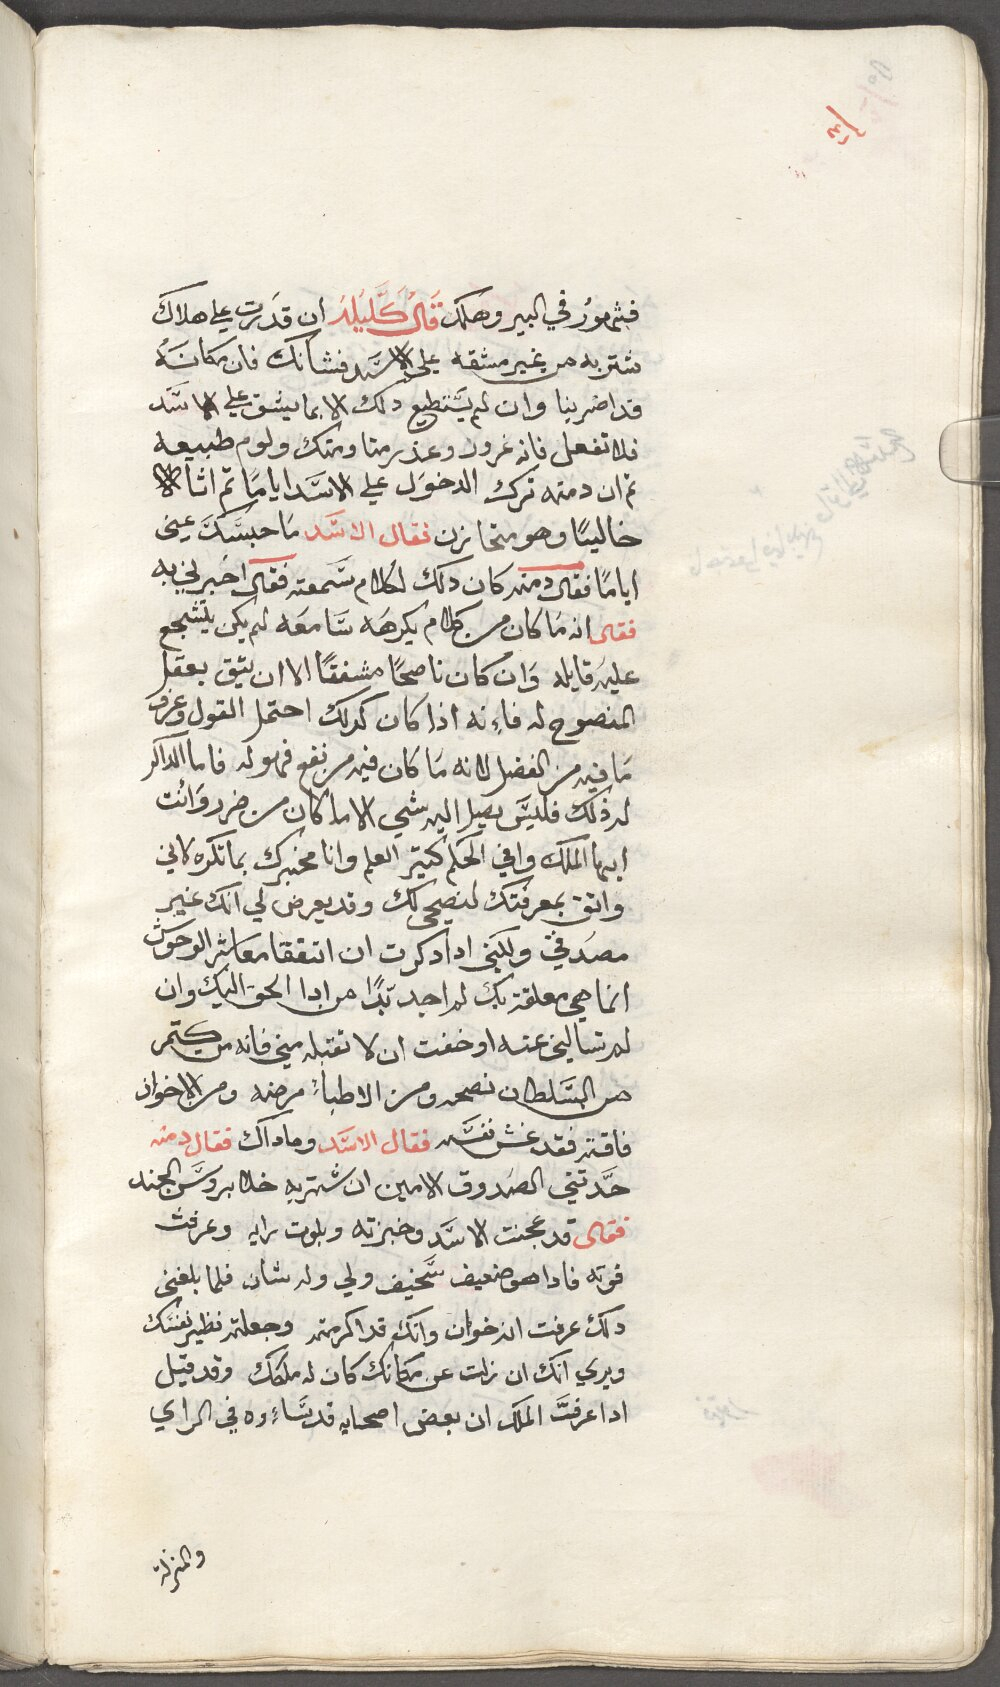 فتهور في البير وهلك قال كليله ان قدرت علي هلاك
شتربه من غير مشقه علي الاسد فشانك فان مكانه
قد اضر بنا وان لم يستطيع دلك الا بما يشق علي الاسد
فلا تفعل فانه غرور وعذر منا ومنك ولوم طبيعه
ثم ان دمنه ترك الدخول علي الاسد اياما ثم اتا الا
خاليا وهو متحازن فقال الاسد ما حبسك عني
اياما فقال دمنه كان دلك لكلام سمعته فقال اخبرني به
فقال انه ما كان من كلام يكرهه سامعه لم يكن يتشجع
عليه قايله وان كان ناصحا مشفقا الا ان يثق بعقل
المنصوح له فاءنه اذا كان كدلك احتمل القول وعرف
ما فيه من الفضل لانه ما كان فيه من نفع فهو له فاما الداكر
له ذلك فليس يصل اليه شي الا ما كان من ضرر وانت
ايها الملك وافي الحلم كثير العلم وانا مخبرك بما تكره لاني
واثق بمعرفتك لنصحي لك وقد يعرض لي انك غير
مصدقي ولكني ادا دكرت ان انفقنا معاشر الوحوش
انما هي معلقة بك لم اجد بدا من ادا الحق اليك وان
لم تسالني عنه او خفت ان لا تقبله مني فانه من يكتم
من السلطان نصحه ومن الاطباء مرضه ومن الاخوان
فاقته فقد غش نفسه فقال الاسد وما داك فقال دمنه
حدثني الصدوق الامين ان شتربه خلا بروس الجند
فقال قد عجنت الاسد وخبزته وبلوت رايه وعرفت
قوته فادا هو ضعيف سخيف ولي وله شان فلما بلغني
دلك عرفت انه خوان وانك قد اكرمته وجعلته نظير نفسك
ويري انك ان زلت عن مكانك كان له ملكك وقد قيل
ادا عرفت الملك ان بعض اصحابه قد ساءوه في الراي
والمنزلة